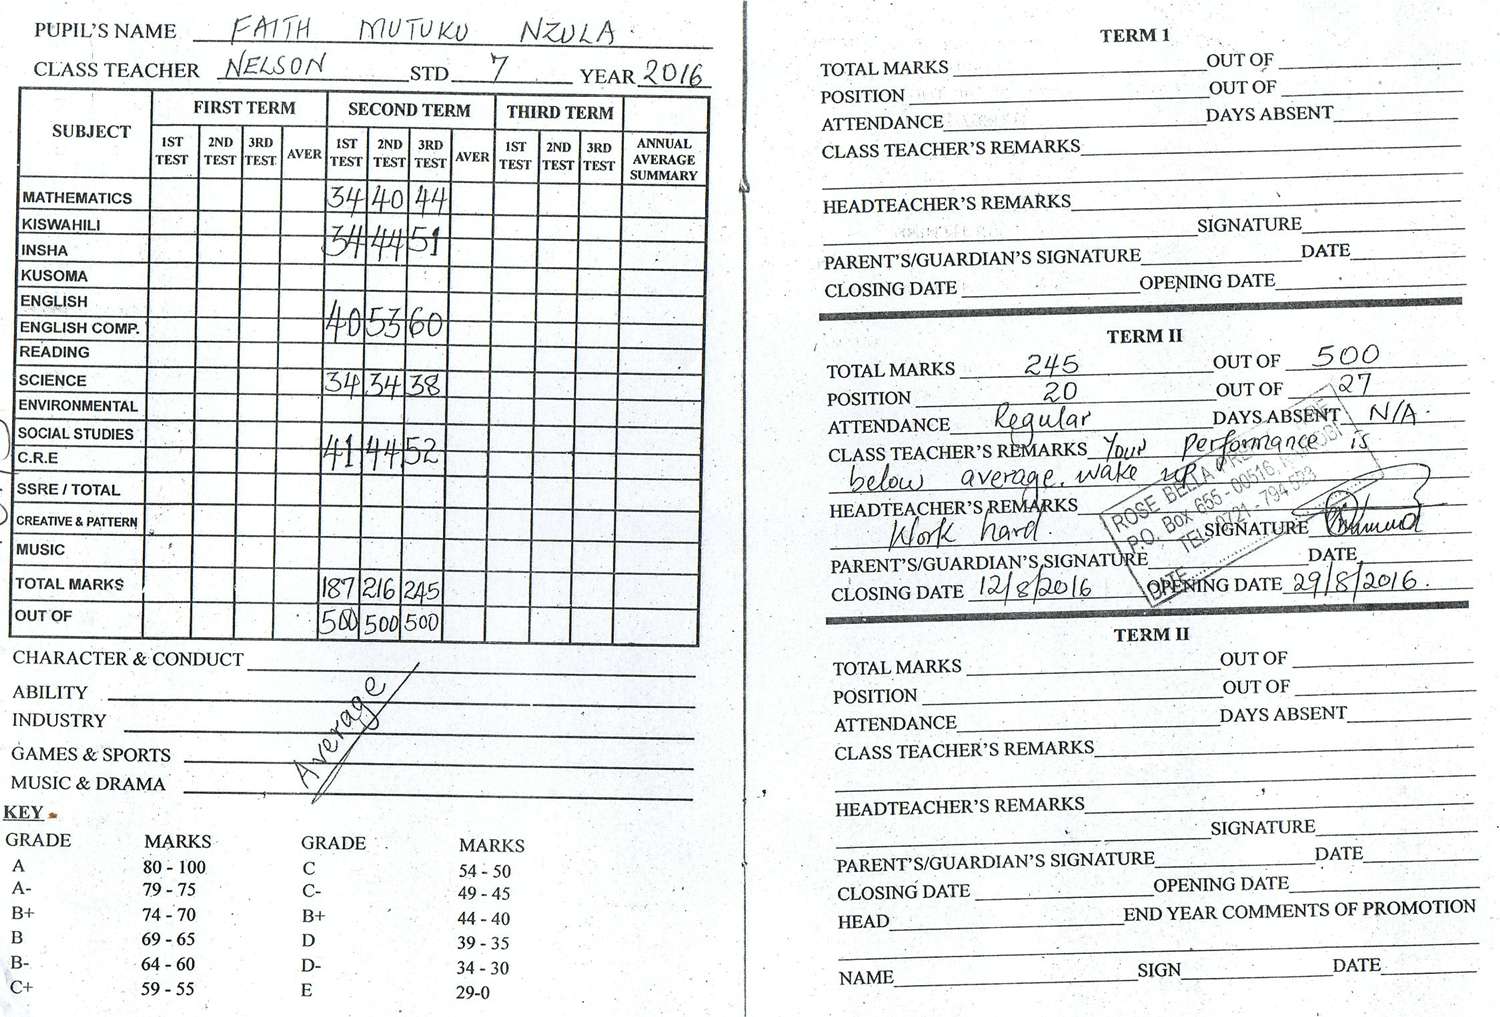 PUPIL'S NAME FAITH MUTUKU NZULA
CLASS TEACHER NELSON STD 7 YEAR 2016
SUBJECT FIRST TERM SECOND TERM THIRD TERM
1ST TEST 2ND TEST 3RD TEST AVER 1ST TEST 2ND TEST 3RD TEST AVER 1ST TEST 2ND TEST 3RD TEST ANNUAL AVERAGE SUMMARY
MATHEMATICS 34 40 44
KISWAHILI
INSHA 34 44 51
KUSOMA
ENGLISH
ENGLISH COMP. 40 53 60
READING
SCIENCE 34 34 38
ENVIRONMENTAL
SOCIAL STUDIES
C.R.E 41 44 52
SSRE / TOTAL
CREATIVE & PATTERN
MUSIC
TOTAL MARKS 187 216 245
OUT OF 500 500 500
CHARACTER & CONDUCT
ABILITY
INDUSTRY
GAMES & SPORTS
MUSIC & DRAMA
Average
KEY
GRADE MARKS GRADE MARKS
A 80 - 100 C 54 - 50
A- 79 - 75 C- 49 - 45
B+ 74 - 70 B+ 44 - 40
B 69 - 65 D 39 - 35
B- 64 - 60 D- 34 - 30
C+ 59 - 55 E 29-0
TERM 1
TOTAL MARKS OUT OF
POSITION OUT OF
ATTENDANCE DAYS ABSENT
CLASS TEACHER'S REMARKS
HEADTEACHER'S REMARKS
SIGNATURE
PARENT'S/GUARDIAN'S SIGNATURE DATE
CLOSING DATE OPENING DATE
TERM II
TOTAL MARKS 245 OUT OF 500
POSITION 20 OUT OF 27
ATTENDANCE Regular DAYS ABSENT N/A.
CLASS TEACHER'S REMARKS Your performance is
below average. wake up
HEADTEACHER'S REMARKS
Work hard. SIGNATURE
PARENT'S/GUARDIAN'S SIGNATURE DATE
CLOSING DATE 12/8/2016 OPENING DATE 29/8/2016.
ROSE BELLA
P.O. Box 655 - 00516,
TEL: 0721 - 794 523
DATE
TERM II
TOTAL MARKS OUT OF
POSITION OUT OF
ATTENDANCE DAYS ABSENT
CLASS TEACHER'S REMARKS
HEADTEACHER'S REMARKS
SIGNATURE
PARENT'S/GUARDIAN'S SIGNATURE DATE
CLOSING DATE OPENING DATE
HEAD END YEAR COMMENTS OF PROMOTION
NAME SIGN DATE